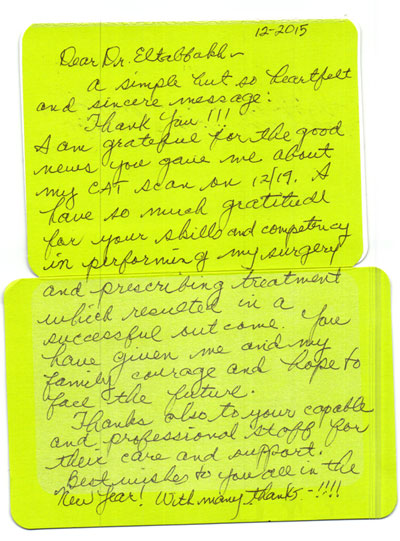 12-2015
Dear Dr. Eltabbakh -
a simple but so heartfelt
and sincere message:
Thank You!!!
I am grateful for the good
news you gave me about
my CAT scan on 12/19. I
have so much gratitude
for your skills and competency
in performing my surgery
and prescribing treatment
which resulted in a
successful outcome. You
have given me and my
family courage and hope to
face the future.
Thanks also to your capable
and professional staff for
their care and support.
Best wishes to you all in the
New Year! With many thanks -!!!!